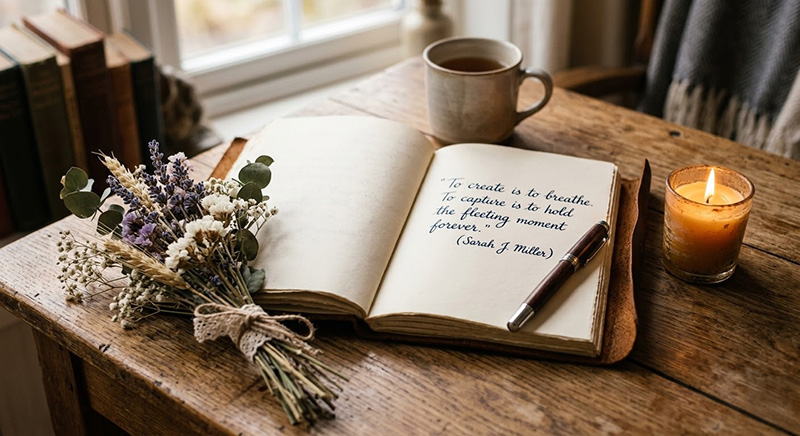 "To create is to breathe.
To capture is to hold
the fleeting moment
forever."
(Sarah J. Miller)